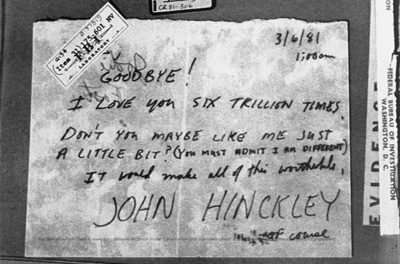 CR81-306
FBI
LABORATORY
3/6/81
1:00am
GOODBYE!
I LOVE YOU SIX TRILLION TIMES.
DON'T YOU MAYBE LIKE ME JUST
A LITTLE BIT? (YOU MUST ADMIT I AM DIFFERENT)
IT would make all of this worthwhile,
JOHN HINCKLEY
of course
FEDERAL BUREAU OF INVESTIGATION
WASHINGTON, D. C.
EVIDENCE